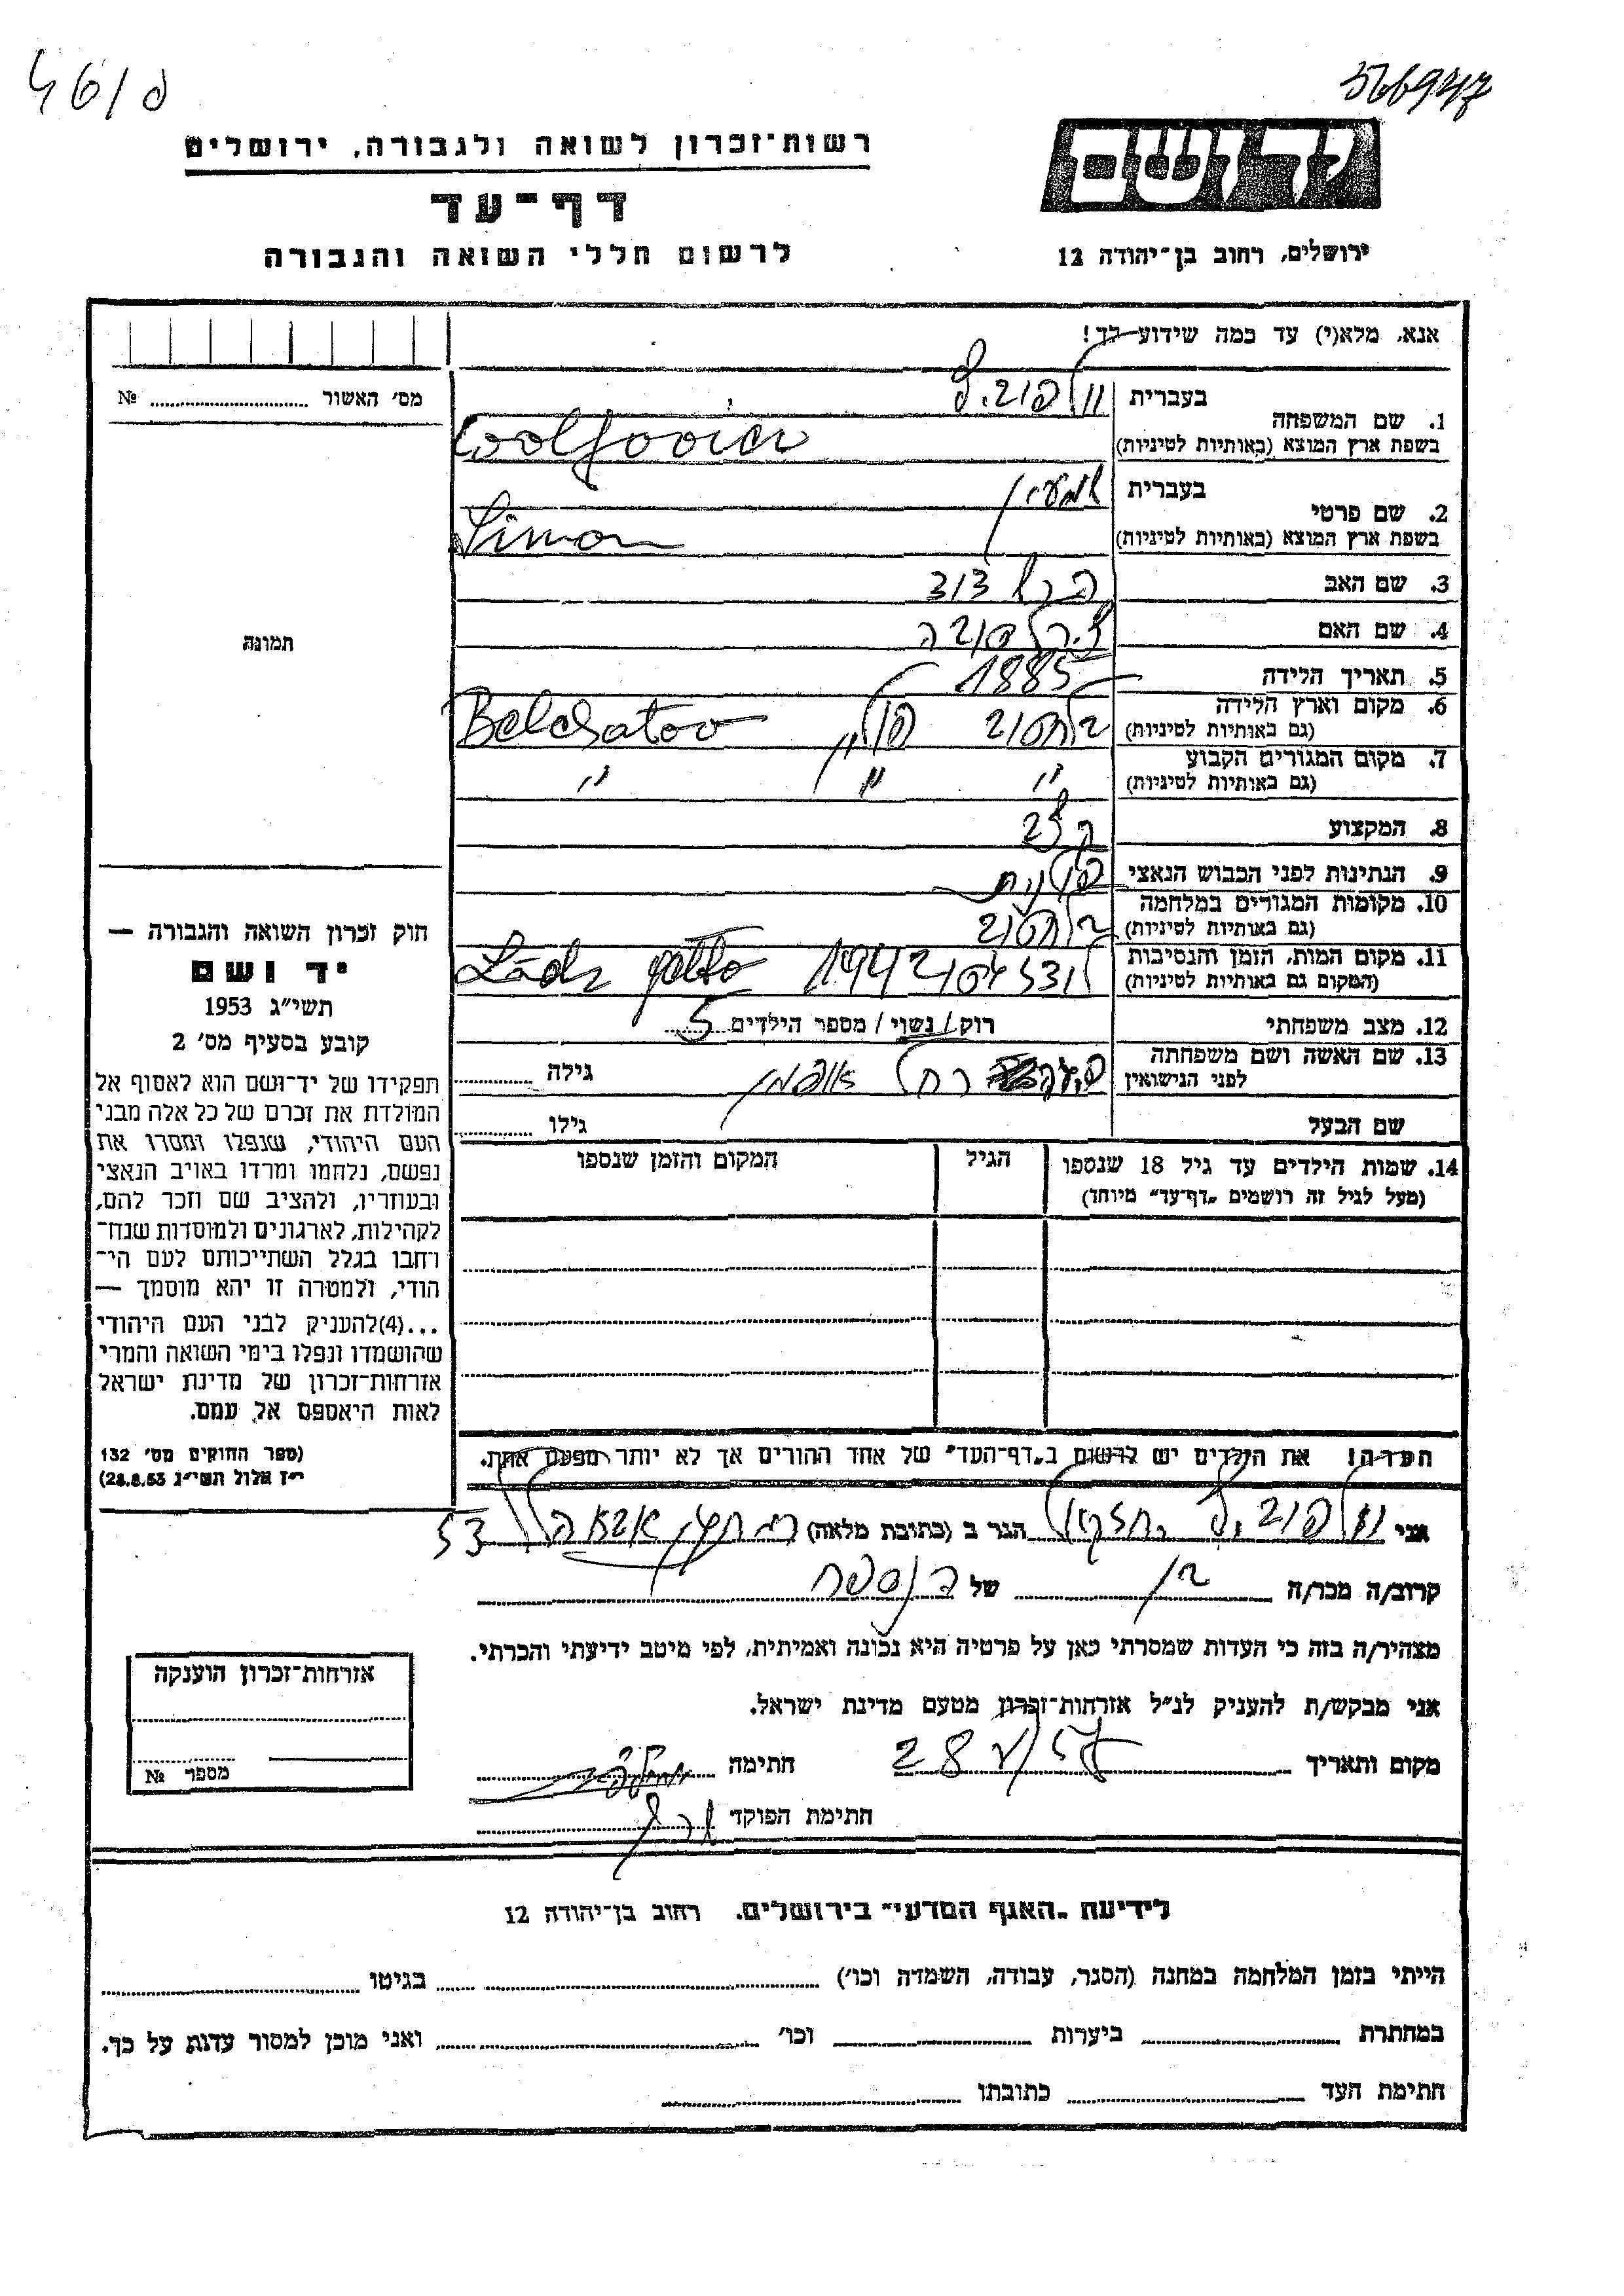 רשות־זכרון לשואה ולגבורה, ירושלים
דף־עד
לרשום חללי השואה והגבורה
ידושם
ירושלים, רחוב בן־יהודה 12
אנא, מלא(י) עד כמה שידוע לך!
מס׳ האשור № 
תמונה
חוק זכרון השואה והגבורה —
יד ושם
תשי״ג 1953
קובע בסעיף מס׳ 2
תפקידו של יד־ושם הוא לאסוף אל
המולדת את זכרם של כל אלה מבני
העם היהודי, שנפלו ומסרו את
נפשם, נלחמו ומרדו באויב הנאצי
ובעוזריו, ולהציב שם וזכר להם,
לקהילות, לארגונים ולמוסדות שנח־
רחבו בגלל השתייכותם לעם הי־
הודי, ולמטרה זו יהא מוסמך —
...(4)להעניק לבני העם היהודי
שהושמדו ונפלו בימי השואה והמרי
אזרחות־זכרון של מדינת ישראל
לאות היאספם אל עמם.
(ספר החוקים מס׳ 132
י״ז אלול תשי״ג 28.8.53)
1. שם המשפחה
בעברית
בשפת ארץ המוצא (באותיות לטיניות)
2. שם פרטי
בעברית שמעון
בשפת ארץ המוצא (באותיות לטיניות) Simon
3. שם האב
4. שם האם
5. תאריך הלידה 1885
6. מקום וארץ הלידה
(גם באותיות לטיניות) בלחטוב פולין Belchatov
7. מקום המגורים הקבוע
(גם באותיות לטיניות) " " "
8. המקצוע קצב
9. הנתינות לפני הכבוש הנאצי פולנית
10. מקומות המגורים במלחמה
(גם באותיות לטיניות) בלחטוב
11. מקום המות, הזמן והנסיבות
(המקום גם באותיות לטיניות) 1942 Lódz getto
12. מצב משפחתי רוק/נשוי/מספר הילדים 5
13. שם האשה ושם משפחתה
לפני הנישואין רחל גילה
שם הבעל גילו
14. שמות הילדים עד גיל 18 שנספו
(מעל לגיל זה רושמים „דף־עד״ מיוחד)
הגיל
המקום והזמן שנספו
הערה! את הילדים יש לרשום ב„דף־העד״ של אחד ההורים אך לא יותר מפעם אחת.
אני הגר ב (כתובת מלאה) 53
קרוב/ה מכר/ה בן של הנספה
מצהיר/ה בזה כי העדות שמסרתי כאן על פרטיה היא נכונה ואמיתית, לפי מיטב ידיעתי והכרתי.
אני מבקש/ת להעניק לנ״ל אזרחות־זכרון מטעם מדינת ישראל.
מקום ותאריך חתימה
חתימת הפוקד
אזרחות־זכרון הוענקה
מספר №
לידיעת „האגף המדעי״ בירושלים, רחוב בן־יהודה 12
הייתי בזמן המלחמה במחנה (הסגר, עבודה, השמדה וכו׳) בגיטו
במחתרת ביערות וכו׳ ואני מוכן למסור עדות על כך.
חתימת העד כתובתו